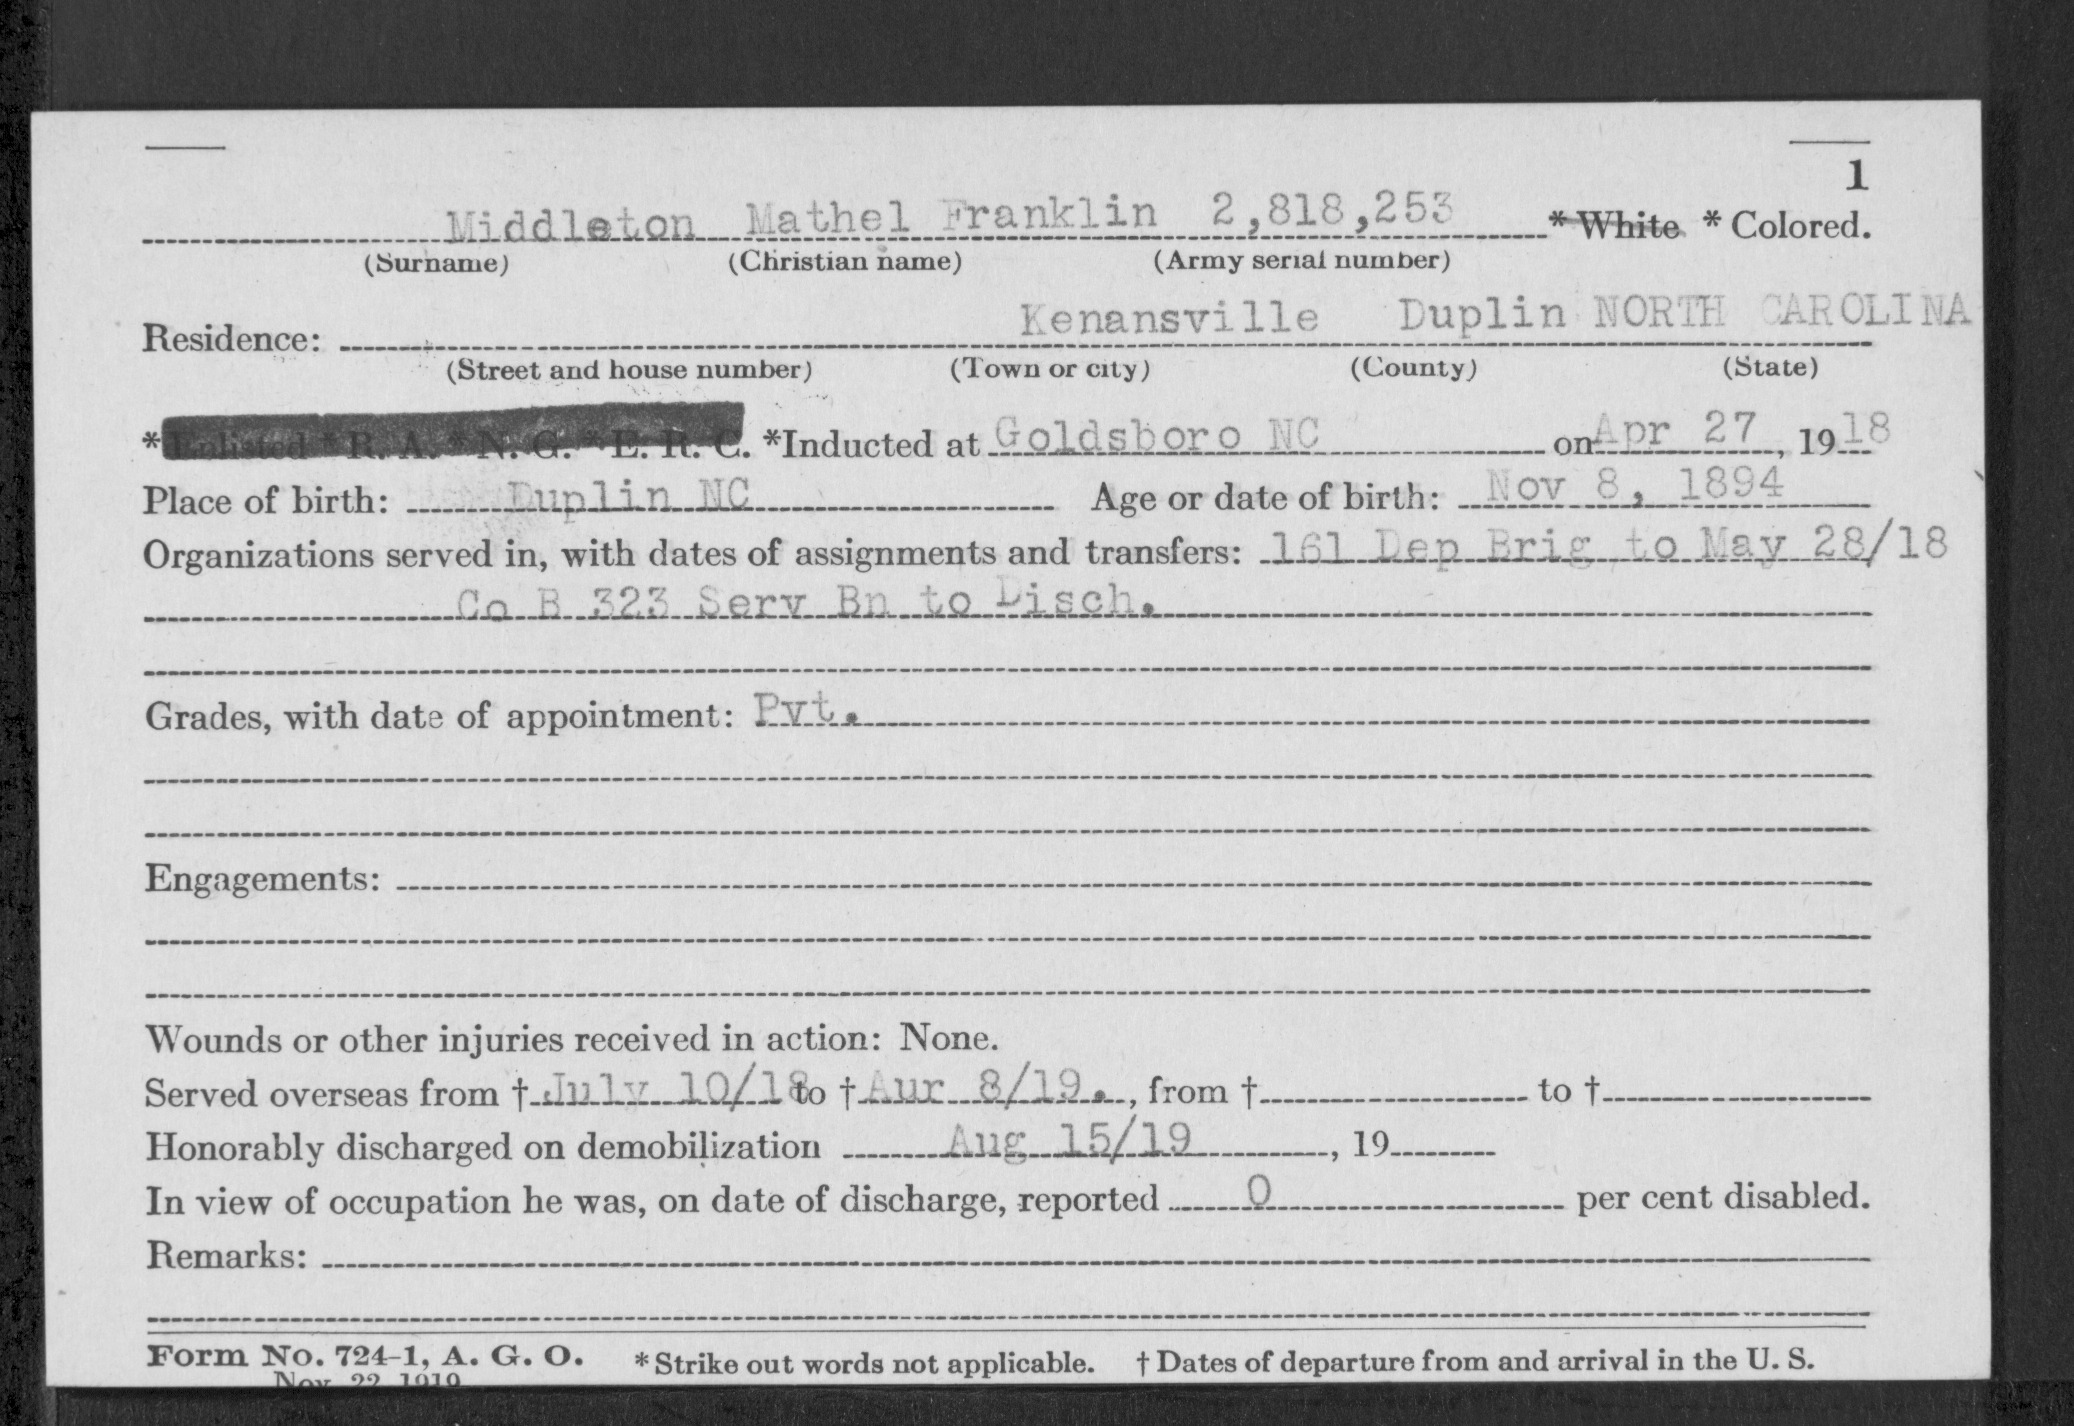 1
Middleton Mathel Franklin 2,818,253 * White * Colored.
(Surname) (Christian name) (Army serial number)
Kenansville Duplin NORTH CAROLINA
Residence:
(Street and house number) (Town or city) (County) (State)
*Enlisted * R. A. * N. G. * E. R. C. *Inducted at Goldsboro NC on Apr 27, 1918
Place of birth: Duplin NC Age or date of birth: Nov 8, 1894
Organizations served in, with dates of assignments and transfers: 161 Dep Brig to May 28/18
Co B 323 Serv Bn to Disch.
Grades, with date of appointment: Pvt.
Engagements:
Wounds or other injuries received in action: None.
Served overseas from † July 10/18 to † Aur 8/19., from † to †
Honorably discharged on demobilization Aug 15/19, 19
In view of occupation he was, on date of discharge, reported 0 per cent disabled.
Remarks:
Form No. 724-1, A. G. O. * Strike out words not applicable. † Dates of departure from and arrival in the U. S.
Nov. 22, 1919